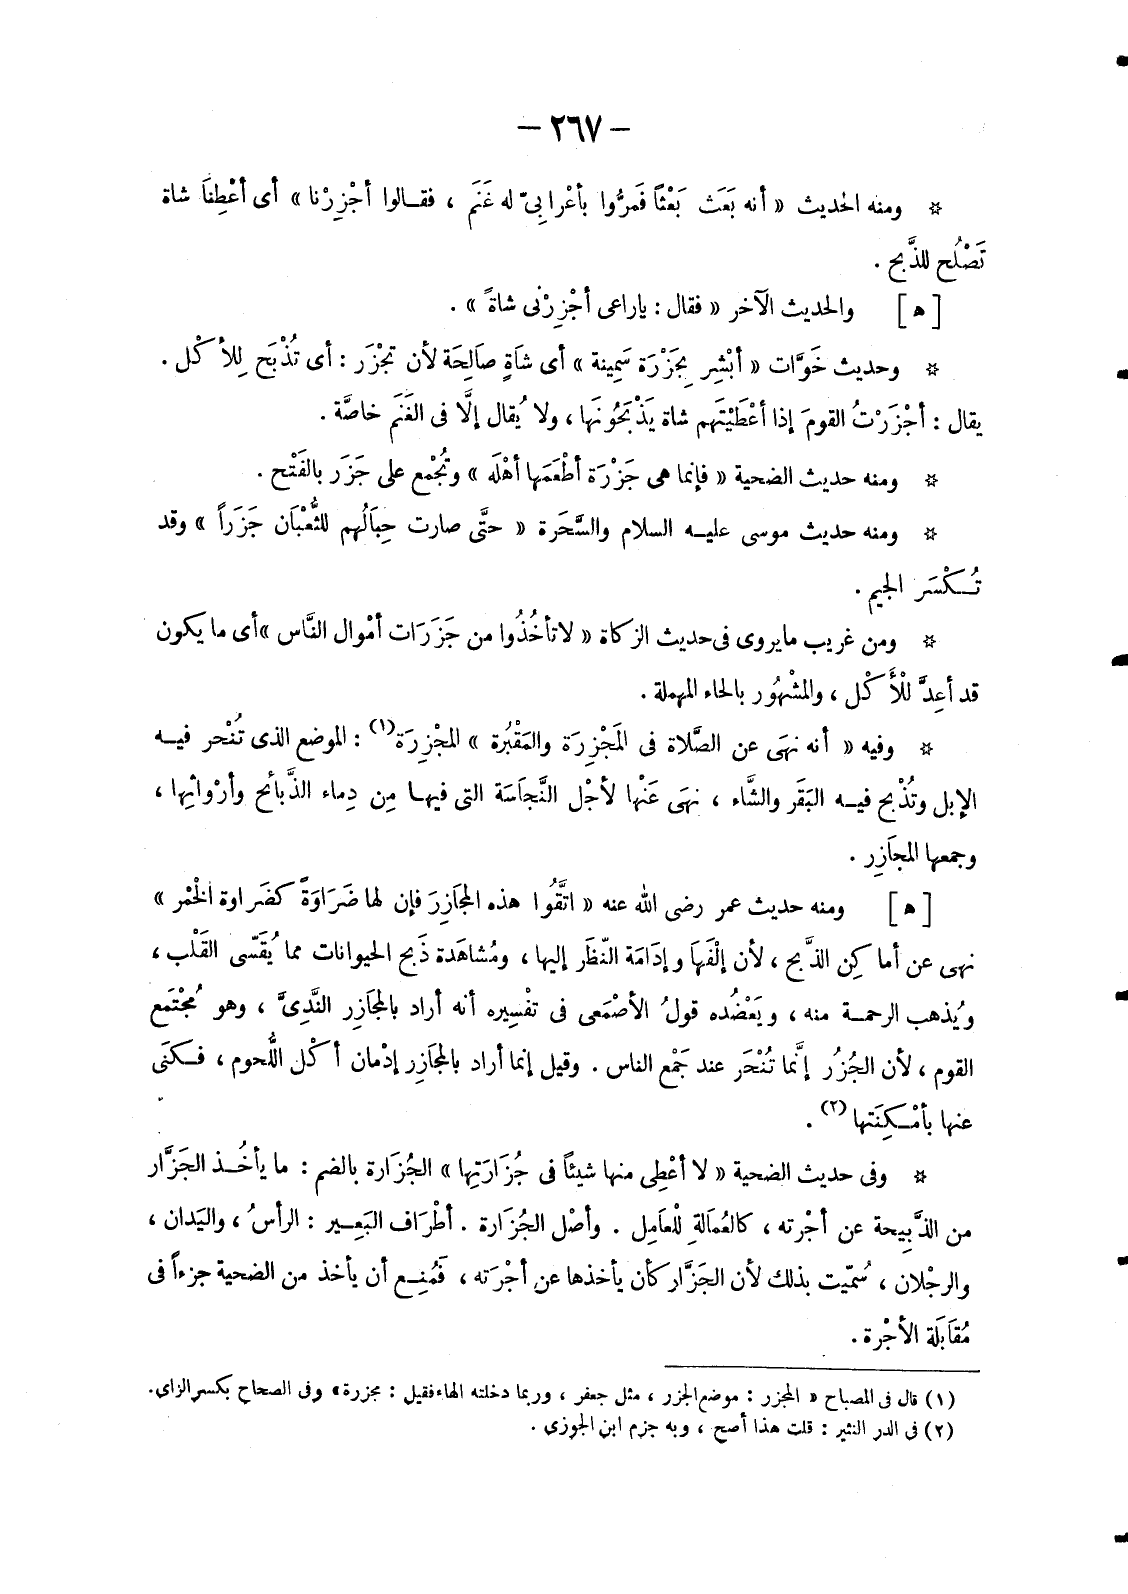 — ٢٦٧ —
* ومنه الحديث « أنه بَعَث بَعْثًا فَمرُّوا بأعْرابىّ له غَنَم ، فقالوا أجْزِرْنا » أى أعْطِنَا شاة
تَصْلُح للذَّبح .
[ ه ] والحديث الآخر « فقال : ياراعى أجْزِرْنى شاةً » .
* وحديث خَوَّات « أبْشِر بِجَزْرَة سَمِينة » أى شَاةٍ صَالِحَة لأن تجْزَر : أى تُذْبَح لِلأكْل .
يقال : أجْزَرْتُ القومَ إذا أعْطَيْتَهم شاة يَذْبَحُونَها ، ولا يُقال إلَّا فى الغَنَم خاصَّة .
* ومنه حديث الضحية « فإنما هى جَزْرَة أطْعَمَها أهْلَه » وتُجْمع على جَزَر بالفَتْح .
* ومنه حديث موسى عليه السلام والسَّحَرة « حتَّى صارت حِبَالُهم للثُّعْبَان جَزَراً » وقد
تُكْسَر الجيم .
* ومن غريب مايروى فى حديث الزكاة « لاتأخُذُوا من جَزَرَات أمْوال النَّاس »أى ما يكون
قد أعِدَّ للْأَكْل ، والمشْهُور بالحاء المهملة .
* وفيه « أنه نهَى عن الصَّلاة فى المَجْزِرَة والمَقْبُرة » المجْزِرَة(١) : الموضع الذى تُنْحر فيه
الإبل وتُذْبح فيه البَقَر والشَّاء ، نهَى عَنْها لأجْل النَّجاسَة التى فيها مِن دِماء الذَّبائح وأرْواثِها ،
وجمعها المجَازِر .
[ ه ] ومنه حديث عمر رضى الله عنه « اتَّقُوا هذه المجَازِرَ فإن لها ضَرَاوَةً كضَراوة الخْمْر »
نهى عن أماكِن الذَّبح ، لأن إلْفَهَا وإدَامَة النَّظَر إليها ، ومُشاهَدة ذَبح الحيوانات مما يُقَسّى القَلْب ،
ويُذهب الرحمة منه ، ويَعْضُده قولُ الأصْمَعى فى تفْسِيره أنه أراد بالمجَازِر النَّدِىَّ ، وهو مُجْتَمع
القوم ، لأن الجُزُر إنَّما تُنْحَر عند جَمْع الناس . وقيل إنما أراد بالمجَازِر إدْمان أكْل اللُّحوم ، فكنَى
عنها بأمْكِنَتها (٢) .
* وفى حديث الضحية « لا أعْطِى منها شيئًا فى جُزَارَتِها » الجُزَارة بالضم : ما يأخُذ الجَزَّار
من الذَّبِيحة عن أجْرته ، كالعُمَالةِ لْلعَامِل . وأصْل الجُزَارة . أطْرَاف البَعِير : الرأسُ ، واليَدان ،
والرجْلان ، سُمّيت بذلك لأن الجَزَّار كأن يأخذها عن أجْرَته ، فَمُنِع أن يأخذ من الضحية جزءاً فى
مُقَابَلة الأجْرة .
(١) قال فى المصباح « المجزر : موضع الجزر ، مثل جعفر ، وربما دخلته الهاء فقيل : مجزرة» وفى الصحاح بكسر الزاى.
(٢) فى الدر النثير : قلت هذا أصح ، وبه جزم ابن الجوزى .